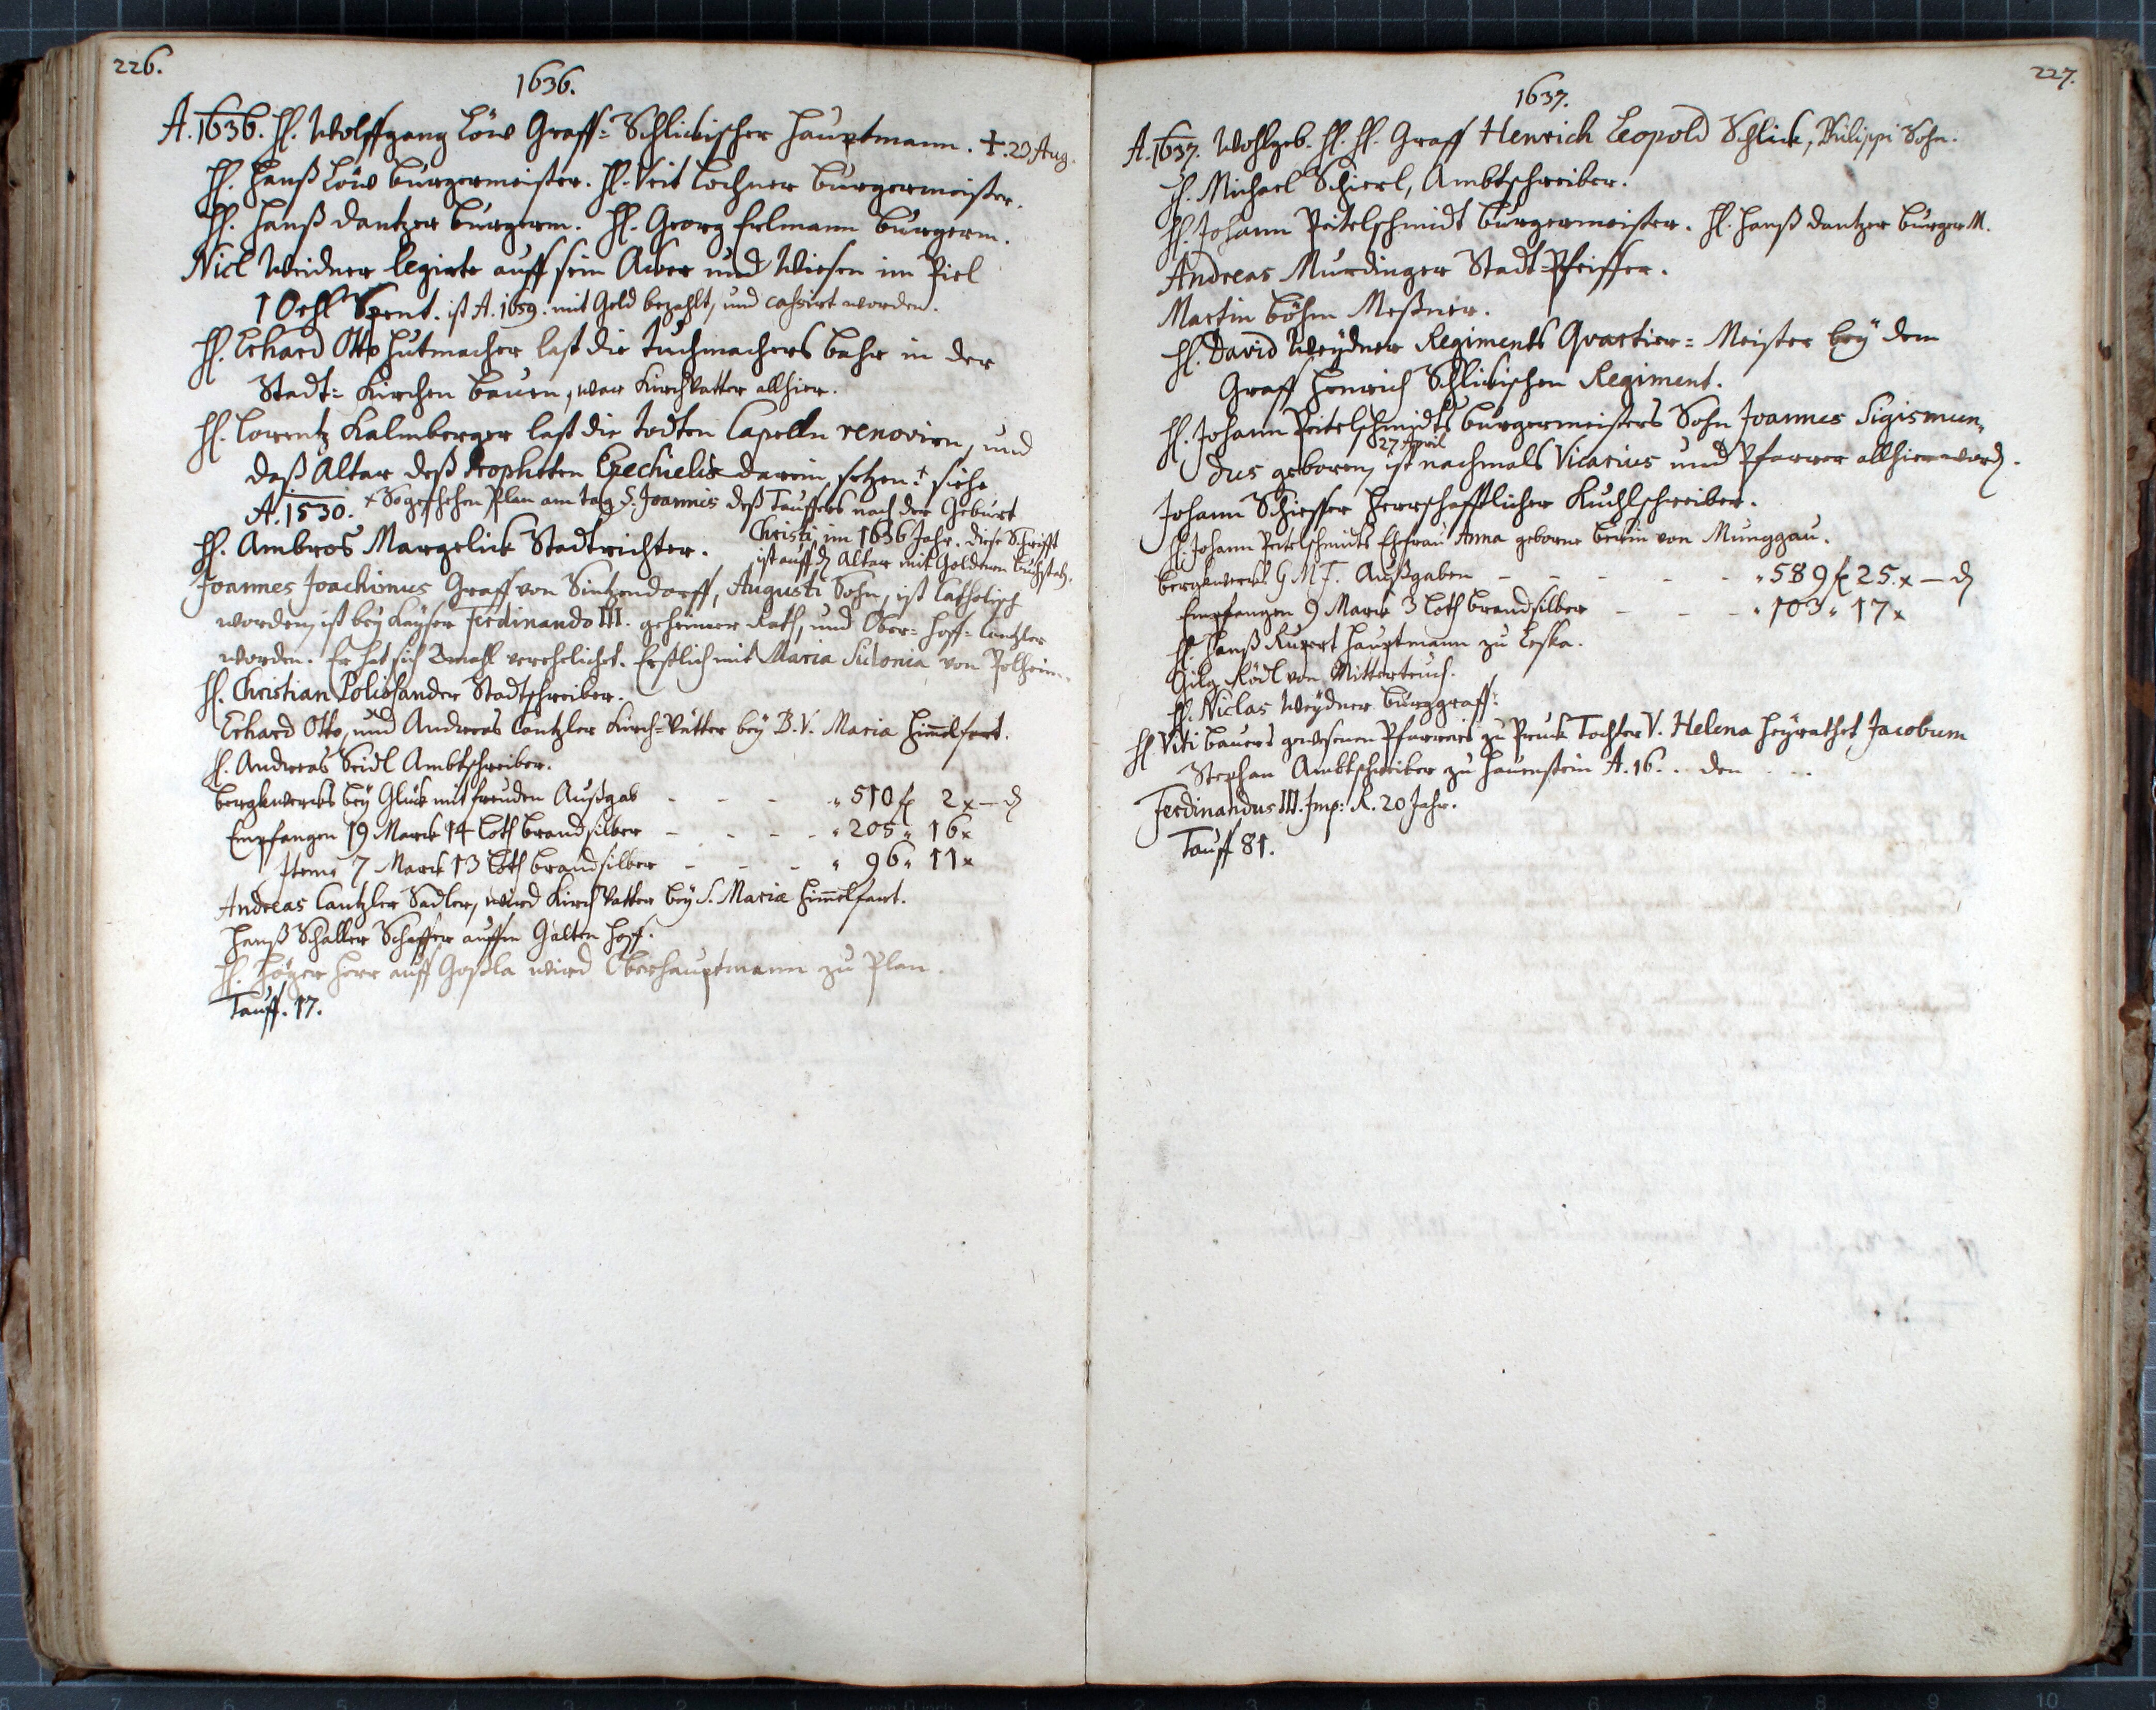 226.
1636.
A. 1636. H. Wolffgang Löw Graff= Schlickischer Hauptmann. †. 20 Aug.
H. Hanß Löw Burgermeister. H. Veit Lochner Burgermeister.
H. Hanß Dantzer Burgerm. H. Georg Erlmann Burgerm.
Nicl Weidner legirte auff sein Acker und Wiesen im Ziel
1 Oehl Spent. ist A. 1659. mit Geld bezahlt, und cassirt worden.
H. Erhard Otto Hutmacher last die Tuchmachers Bahr in der
Stadt= Kirchen bauen, war Kirchvatter allhier.
H. Lorentz Kalmberger last die Todten Capelln renovirn, und
daß Altar deß Propheten Ezechielis darein setzen. † siehe
A. 1530. × So geschehen Plan am tag S. Joannis deß Tauffers nach der Geburt
Christi im 1636 Jahr. diese Schrifft
H. Ambros Margelick Stadtrichter.
ist auff dem Altar mit Goldenen Buchstab.
Joannes Joachimus Graff von Sintzendorff, Augusti Sohn, ist Catholisch
worden, ist bey Kayser Ferdinando III. geheimer Rath, und Ober= Hoff= Cantzler
worden. Er hat sich 2mahl verehelichet. Erstlich mit Maria Sidonia von Polheim
H. Christian Polissander Stadtschreiber.
Erhard Otto, und Andreas Cantzler Kirch=Vätter bey B. V. Maria Himmelfart.
H. Andreas Seidl Ambtschreiber.
Bergkwercks bey Glück mit freuden Außgab - - - " 510 fl 2 x — d
Empfangen 19 Marck 14 Loth brandsilber - - - - " 205 " 16 x
Item 7 Marck 13 Loth brandsilber - - - " 96 " 11 x
Andreas Cantzler Sadler, wird Kirch Vatter bey S. Mariæ Himmelfart.
Hanß Schaller Schaffer auffm Galten Hoff.
H. Höger Herr auff Gossla wird Oberhauptmann zu Plan.
Tauff. 17.
227.
1637.
A. 1637. Wohlgeb. H. H. Graff Henrich Leopold Schlick, Philippi Sohn.
H. Michael Schierl, Ambtschreiber.
H. Johann Peitelschmidt Burgermeister. H. Hanß Dantzer Burger M.
Andreas Murdinger Stadt=Pfeiffer.
Martin Böhm Meßner.
H. David Weydner Regiments Quartier= Meister bey dem
Graff Henrich Schlickischen Regiment.
H. Johann Peitelschmidts Burgermeisters Sohn Joannes Sigismun=
27 April
dus geboren, ist nachmals Vicarius und Pfarrer allhier word.
Johann Schiesser Herrschafftlicher Kuchlschreiber.
H. Johann Peitelschmidts Ehefrau Anna geborne Beurin von Munggau.
Bergkwercks G M F. Außgaben - - - - - " 589 fl 25. x — d
Empfangen 9 Marck 3 Loth brandsilber - - - " 103 " 17 x
H. Hanß Rupert Hauptmann zu Leska.
Gilg Rödl von Mitterteich.
H. Niclas Weydner Burggraff.
H. Viti Bauers gewesenen Pfarrers zu Pruck Tochter V. Helena heyrathet Jacobum
Stephan Ambtschreiber zu Hauenstein A. 16. . den . . .
Ferdinandus III. Imp: R. 20 Jahr.
Tauff 81.